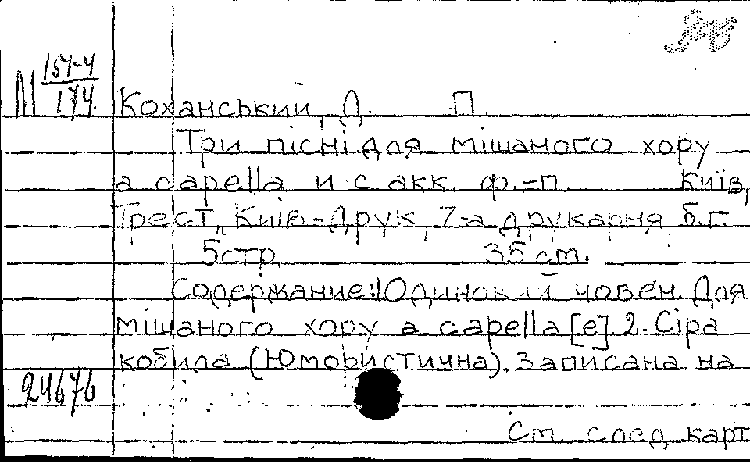 М 154-4/174
Коханський, Д. П.
Три пісні для мішаного хору
a capella и с акк. ф.-п. Київ,
Трест, Київ-Друк, 7-а друкарня б.г.
5стр. 35 см.
Содержание: 1 Одинокий човен. Для
мішаного хору a capella [е]. 2. Сіра
кобила (Юмористична). Записана на
24676
См. след карт